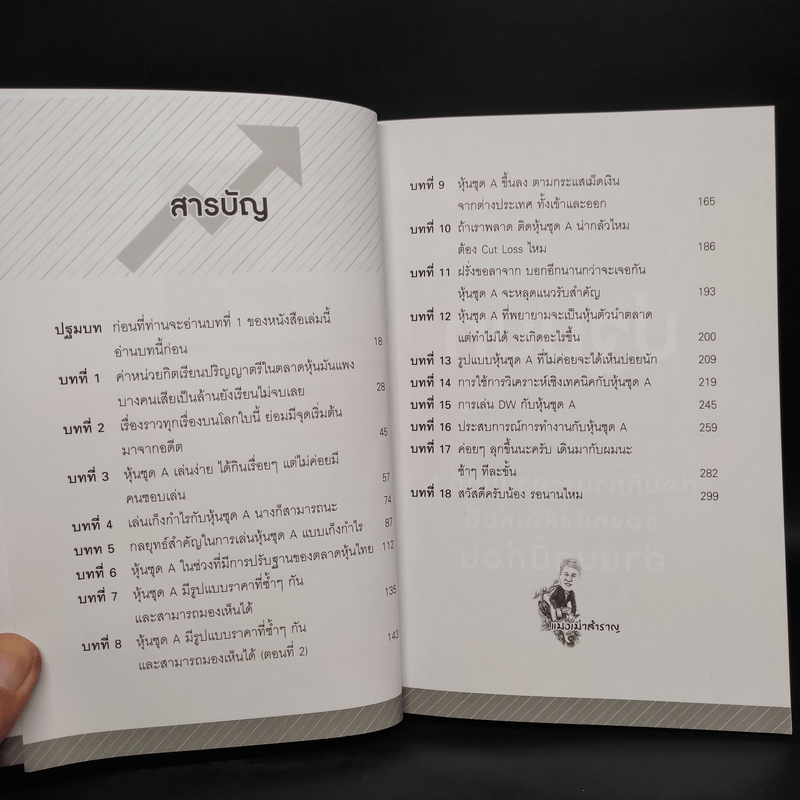 สารบัญ
ปฐมบท ก่อนที่ท่านจะอ่านบทที่ 1 ของหนังสือเล่มนี้
อ่านบทนี้ก่อน 18
บทที่ 1 ค่าหน่วยกิตเรียนปริญญาตรีในตลาดหุ้นมันแพง
บางคนเสียเป็นล้านยังเรียนไม่จบเลย 28
บทที่ 2 เรื่องราวทุกเรื่องบนโลกใบนี้ ย่อมมีจุดเริ่มต้น
มาจากอดีต 45
บทที่ 3 หุ้นชุด A เล่นง่าย ได้กินเรื่อยๆ แต่ไม่ค่อยมี
คนชอบเล่น 57
บทที่ 4 เล่นเก็งกำไรกับหุ้นชุด A นางก็สามารถนะ 74
บทท 5 กลยุทธ์สำคัญในการเล่นหุ้นชุด A แบบเก็งกำไร 87
บทที่ 6 หุ้นชุด A ในช่วงที่มีการปรับฐานของตลาดหุ้นไทย 112
บทที่ 7 หุ้นชุด A มีรูปแบบราคาที่ซ้ำๆ กัน
และสามารถมองเห็นได้ 135
บทที่ 8 หุ้นชุด A มีรูปแบบราคาที่ซ้ำๆ กัน
และสามารถมองเห็นได้ (ตอนที่ 2) 143
บทที่ 9 หุ้นชุด A ขึ้นลง ตามกระแสเม็ดเงิน
จากต่างประเทศ ทั้งเข้าและออก 165
บทที่ 10 ถ้าเราพลาด ติดหุ้นชุด A น่ากลัวไหม
ต้อง Cut Loss ไหม 186
บทที่ 11 ฝรั่งขอลาจาก บอกอีกนานกว่าจะเจอกัน
หุ้นชุด A จะหลุดแนวรับสำคัญ 193
บทที่ 12 หุ้นชุด A ที่พยายามจะเป็นหุ้นตัวนำตลาด
แต่ทำไม่ได้ จะเกิดอะไรขึ้น 200
บทที่ 13 รูปแบบหุ้นชุด A ที่ไม่ค่อยจะได้เห็นบ่อยนัก 209
บทที่ 14 การใช้การวิเคราะห์เชิงเทคนิคกับหุ้นชุด A 219
บทที่ 15 การเล่น DW กับหุ้นชุด A 245
บทที่ 16 ประสบการณ์การทำงานกับหุ้นชุด A 259
บทที่ 17 ค่อยๆ ลุกขึ้นนะครับ เดินมากับผมนะ
ช้าๆ ทีละขั้น 282
บทที่ 18 สวัสดีครับน้อง รอนานไหม 299
แมงเม่าสำราญ